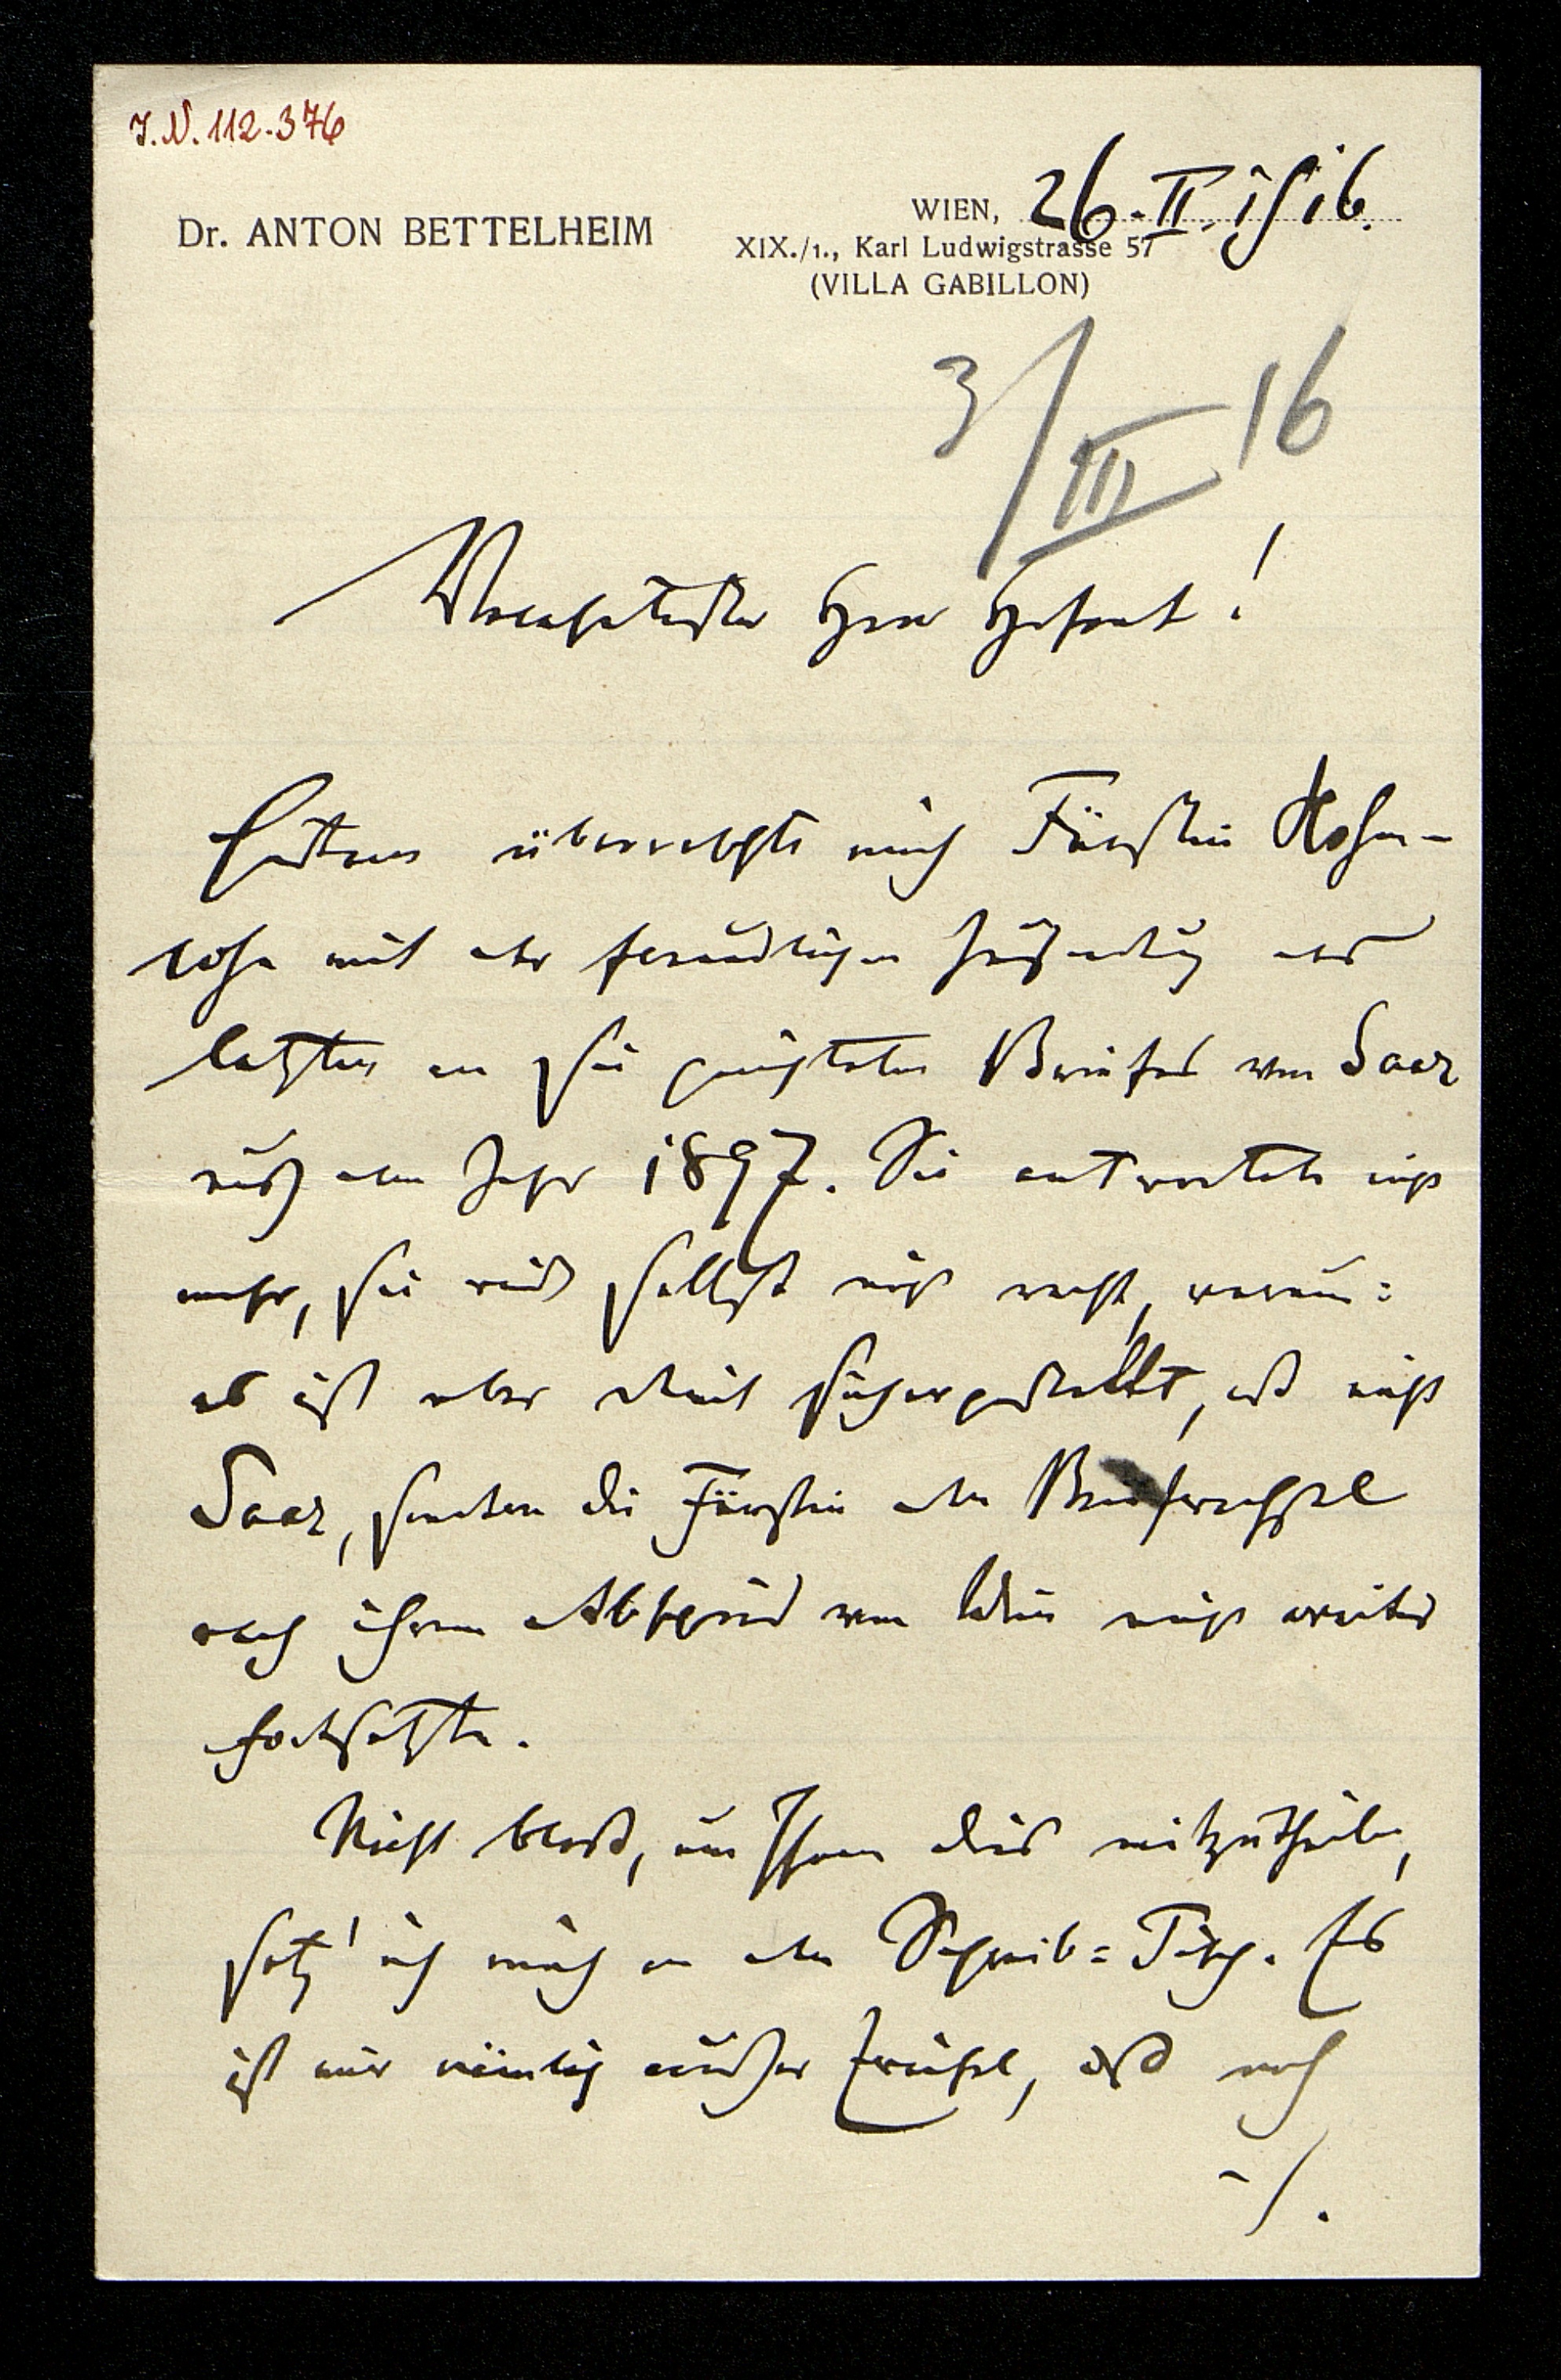 J.N. 112.376
Dr. ANTON BETTELHEIM
WIEN, 26. II. 1916.
XIX./1., Karl Ludwigstrasse 57
(VILLA GABILLON)
3/III 16
Verehrtester Herr Hofrat!
Gestern überraschte mich Fürstin Hohen-
lohe mit der freundlichen Zusendung des
letzten an sie gerichteten Briefes von Saar
aus dem Jahr 1897. Sie antwortete nicht
mehr, sie weiß selbst nicht recht, warum:
es ist aber damit sichergestellt, daß nicht
Saar, sondern die Fürstin den Briefwechsel
nach ihrem Abschied von Wien nicht weiter
fortsetzte.
Nicht bloß, um Ihnen dies mitzutheilen,
setz' ich mich an den Schreib=Tisch. Es
ist mir nämlich außer Zweifel, daß noch
-/.